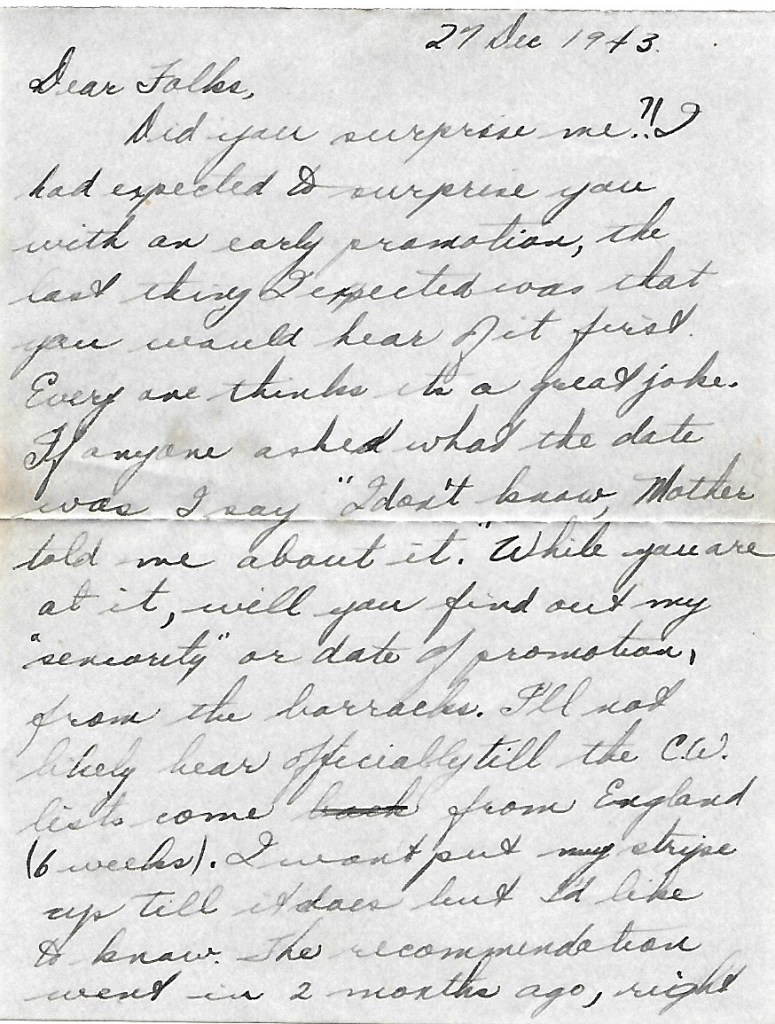 27 Dec 1943.
Dear Folks,
Did you surprise me?!! I
had expected to surprise you
with an early promotion, the
last thing I expected was that
you would hear of it first.
Every one thinks its a great joke.
If anyone asked what the date
was I say "I don't know, Mother
told me about it." While you are
at it, will you find out my
"seniority" or date of promotion,
from the barracks. I'll not
likely hear officially till the C.W.
lists come back from England
(6 weeks). I wont put my stripe
up till it does but I'd like
to know. The recommendation
went in 2 months ago, right